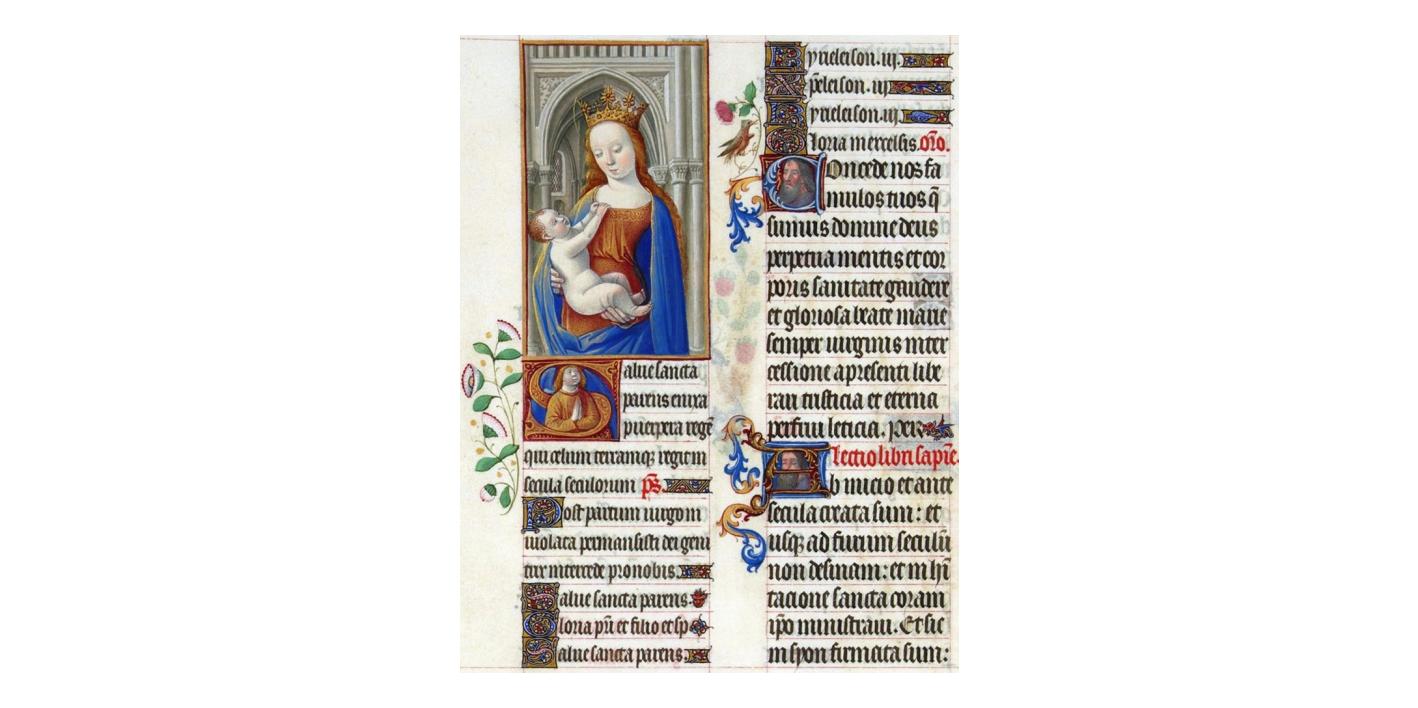 Salve sancta
parens enixa
puerpera regē
qui celum terramq; regit in
secula seculorum p̄s.
Post partum virgo in
violata permansisti dei geni
trix intercede pro nobis.
Salve sancta parens
Gloria pr̄i et filio et sp
Salve sancta parens.
Kyrieleison. iij.
Xp̄eleison. iij
Kyrieleison. iij.
Gloria in excelsis. oro.
Concede nos fa
mulos tuos q̄
sumus domine deus
perpetua mentis et cor
poris sanitate gaudere
et gloriosa beate marie
semper virginis inter
cessione a presenti libe
rari tristicia et eterna
perfrui leticia. Per
lectio libri sapiē.
Ab inicio et ante
secula creata sum: et
usq; ad futurum seculū
non desinam: et in hī
tacione sancta coram
ip̄o ministravi. Et sic
in syon firmata sum: